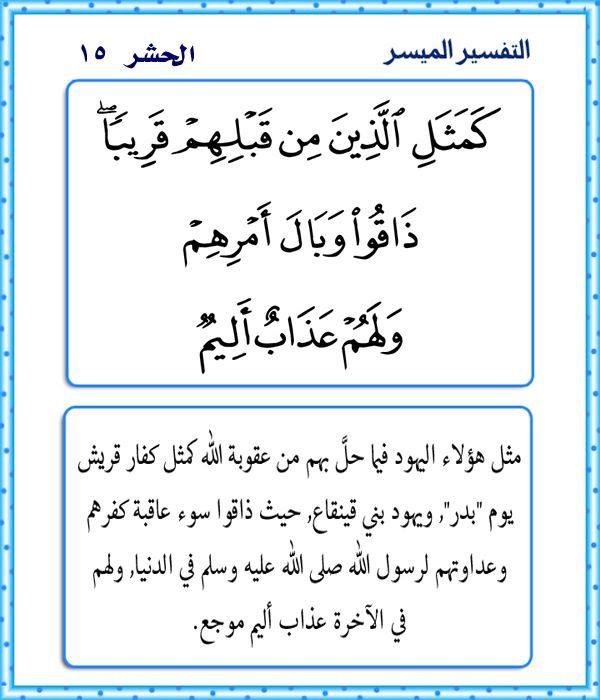 التفسير الميسر الحشر ١٥
كَمَثَلِ ٱلَّذِينَ مِن قَبْلِهِمْ قَرِيبًاۖ
ذَاقُوا۟ وَبَالَ أَمْرِهِمْ
وَلَهُمْ عَذَابٌ أَلِيمٌ
مثل هؤلاء اليهود فيما حلَّ بهم من عقوبة الله كمثل كفار قريش
يوم "بدر", ويهود بني قينقاع, حيث ذاقوا سوء عاقبة كفرهم
وعداوتهم لرسول الله صلى الله عليه وسلم في الدنيا, ولهم
في الآخرة عذاب أليم موجع.